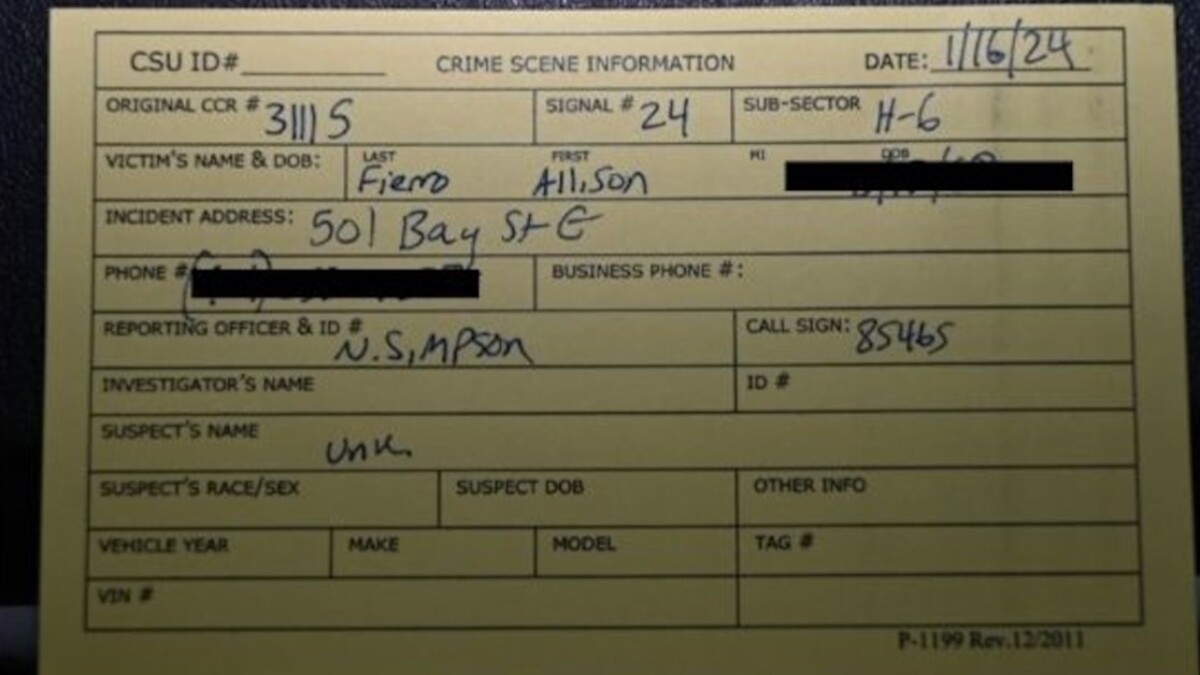 CSU ID# CRIME SCENE INFORMATION DATE: 1/16/24
ORIGINAL CCR # 31115 SIGNAL # 24 SUB-SECTOR H-6
VICTIM'S NAME & DOB: LAST Fierro FIRST Allison MI DOB
INCIDENT ADDRESS: 501 Bay St E
PHONE # BUSINESS PHONE #:
REPORTING OFFICER & ID # N. Simpson CALL SIGN: 85465
INVESTIGATOR'S NAME ID #
SUSPECT'S NAME Unk.
SUSPECT'S RACE/SEX SUSPECT DOB OTHER INFO
VEHICLE YEAR MAKE MODEL TAG #
VIN #
P-1199 Rev.12/2011